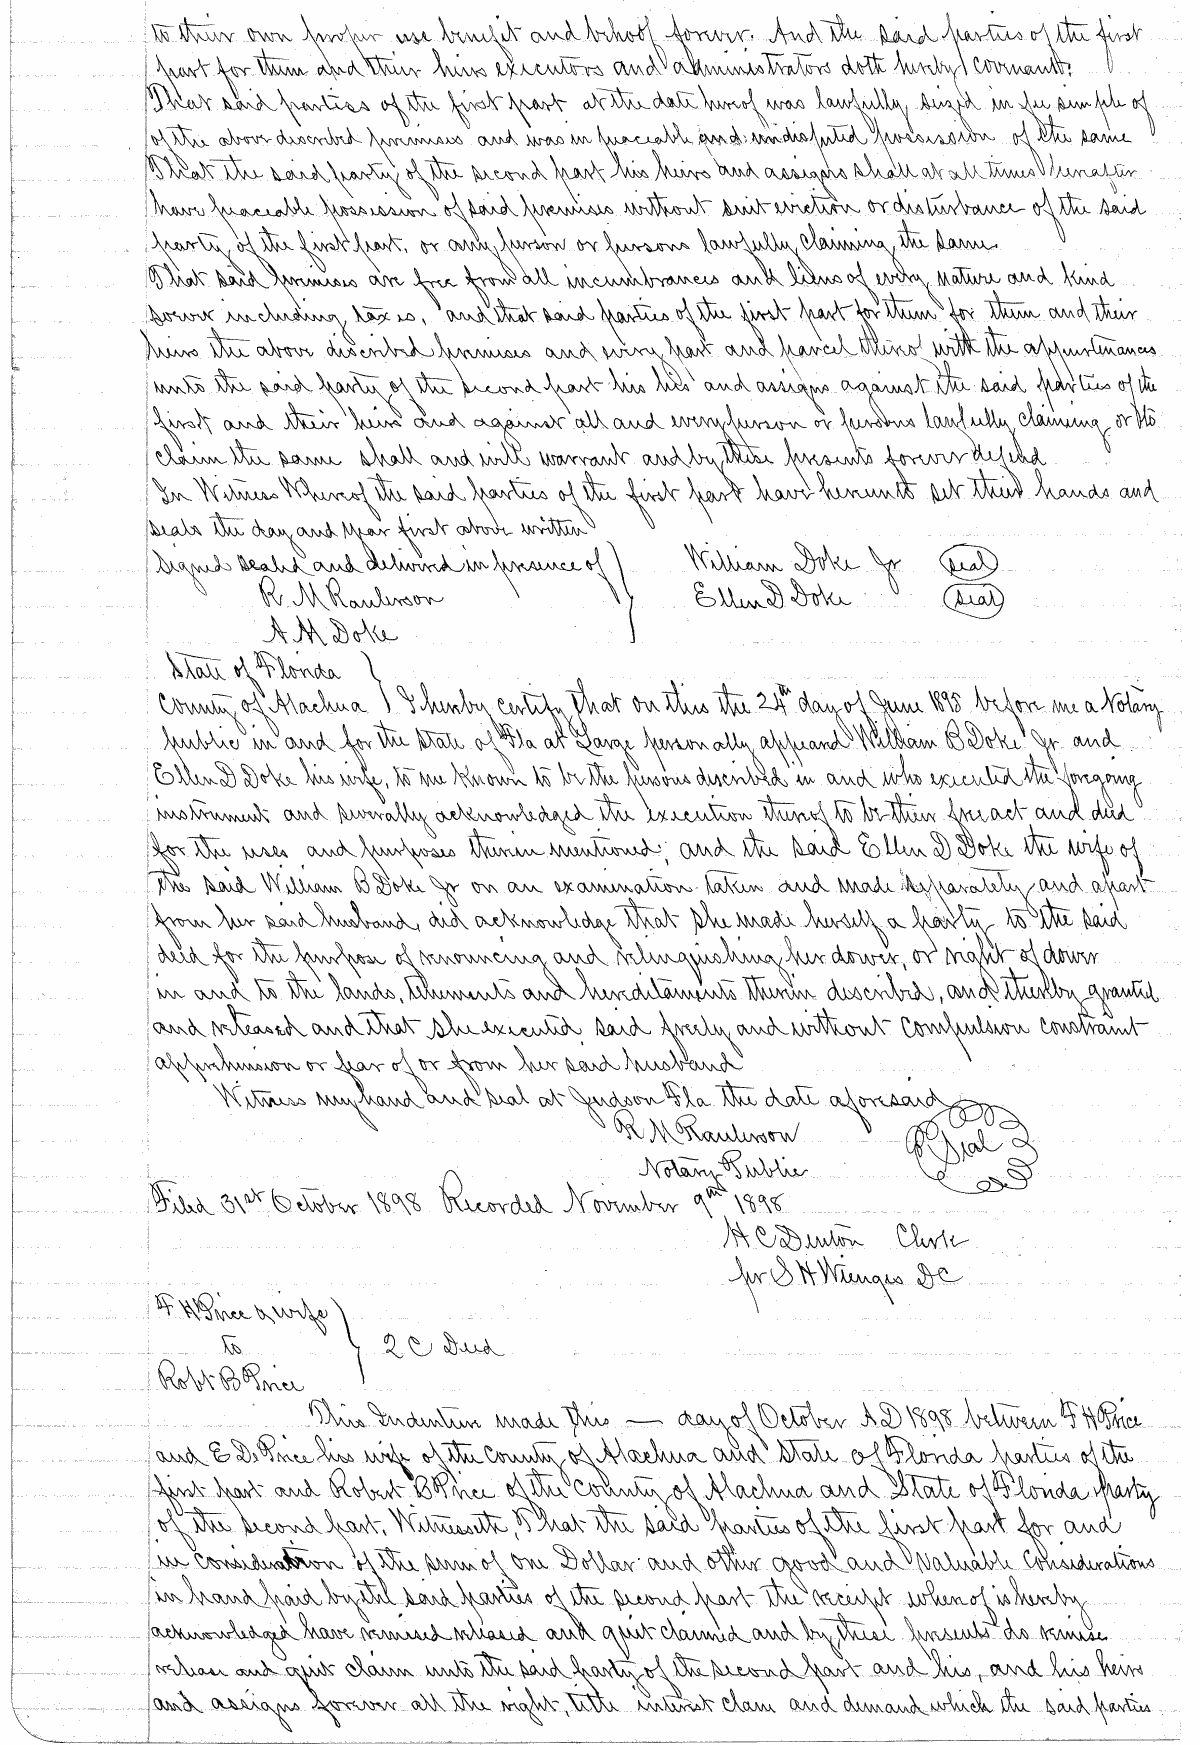 to their own proper use benefit and behoof forever. And the said parties of the first
part for them and their heirs executors and administrators doth hereby covenant.
That said parties of the first part at the date hereof was lawfully seized in fee simple of
of the above described premises and was in peaceable and undisputed possession of the same
That the said party of the second part his heirs and assigns shall at all times hereafter
have peaceable possession of said premises without suit eviction or disturbance of the said
party of the first part, or any person or persons lawfully claiming the same.
That said premises are free from all incumbrances and liens of every nature and kind
soever including taxes, and that said parties of the first part for them for them and their
heirs the above described premises and every part and parcel thereof with the appurtenances
unto the said party of the second part his heirs and assigns against the said parties of the
first and their heirs and against all and every person or persons lawfully claiming or to
claim the same shall and will warrant and by these presents forever defend
In Witness Whereof the said parties of the first part have hereunto set their hands and
seals the day and year first above written
Signed sealed and delivered in presence of } William Doke Jr (seal)
R. M Raulerson Ellen D Doke (seal)
A. M Doke
State of Florida }
County of Alachua } I hereby certify that on this the 24th day of June 1898 before me a Notary
public in and for the State of Fla at Large personally appeared William B Doke Jr and
Ellen D Doke his wife, to me known to be the persons described in and who executed the foregoing
instrument and severally acknowledged the execution thereof to be their free act and deed
for the uses and purposes therein mentioned; and the said Ellen D Doke the wife of
the said William B Doke Jr on an examination taken and made separately and apart
from her said husband, did acknowledge that she made herself a party to the said
deed for the purpose of renouncing and relinquishing her dower, or right of dower
in and to the lands, tenements and hereditaments therein described, and thereby granted
and released and that she executed said freely and without compulsion constraint
apprehension or fear of or from her said husband
Witness my hand and seal at Judson Fla the date aforesaid
R M Raulerson
Notary Public Seal
Filed 31st October 1898 Recorded November 9th 1898
H C Denton Clerk
per S H Wienges DC
F H Price & wife }
to } 2 C Deed
Robt B Price
This Indenture made this — day of October AD 1898 between F H Price
and E D Price his wife of the County of Alachua and State of Florida parties of the
first part and Robert B Price of the County of Alachua and State of Florida party
of the second part, Witnesseth, That the said parties of the first part for and
in consideration of the sum of one Dollar and other good and valuable considerations
in hand paid by the said parties of the second part the receipt whereof is hereby
acknowledged have remised released and quit claimed and by these presents do remise
release and quit claim unto the said party of the second part and his, and his heirs
and assigns forever all the right, title interest claim and demand which the said parties